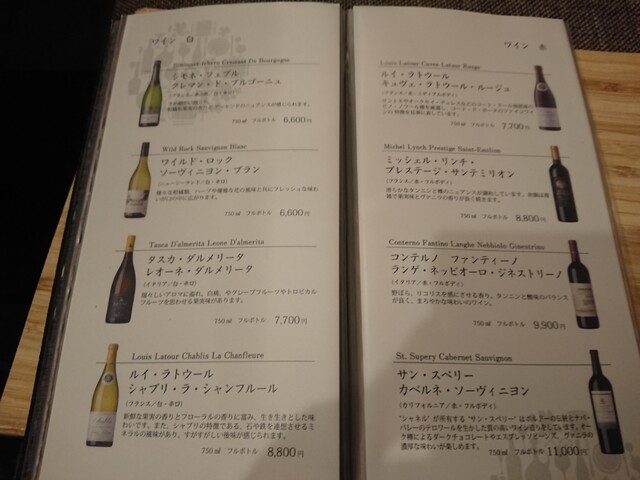 ワイン 白
Crémant De Bourgogne
シモネ・フェブル
クレマン・ド・ブルゴーニュ
750㎖ フルボトル 6,600円
Wild Rock Sauvignon Blanc
ワイルド・ロック
ソーヴィニヨン・ブラン
(ニュージーランド/白・辛口)
750㎖ フルボトル 6,600円
Tasca D'almerita Leone D'almerita
タスカ・ダルメリータ
レオーネ・ダルメリータ
(イタリア/白・辛口)
瑞々しいアロマに溢れ、白桃、やグレープフルーツやトロピカル
フルーツを思わせる果実味があります。
750㎖ フルボトル 7,700円
Louis Latour Chablis La Chanfleure
ルイ・ラトゥール
シャブリ・ラ・シャンフルール
(フランス/白・辛口)
新鮮な果実の香りとフローラルの香りに富み、生き生きとした味
わいです。また、シャブリの特徴である、石や鉄を連想させるミ
ネラルの風味があり、すがすがしい後味が感じられます。
750㎖ フルボトル 8,800円
ワイン 赤
Louis Latour Cuvee Latour Rouge
ルイ・ラトゥール
キュヴェ・ラトゥール・ルージュ
(フランス/赤・ミディアムボディ)
750㎖ フルボトル 7,700円
Michel Lynch Prestige Saint-Emilion
ミッシェル・リンチ・
プレステージ・サンテミリオン
(フランス/赤・フルボディ)
750㎖ フルボトル 8,800円
Conterno Fantino Langhe Nebbiolo Ginestrino
コンテルノ ファンティーノ
ランゲ・ネッビオーロ・ジネストリーノ
(イタリア/赤・フルボディ)
野ばら、リコリスを感じさせる香り、タンニンと酸味のバランス
が良く、まろやかな味わいのワイン。
750㎖ フルボトル 9,900円
St. Supery Cabernet Sauvignon
サン・スペリー
カベルネ・ソーヴィニヨン
(カリフォルニア/赤・フルボディ)
"シャネル" が所有する "サン・スペリー" はボルドーの伝統とナパ・
バレーのテロワールを生かした質の高いワイン造りをしています。オー
ク樽によるダークチョコレートやエスプレッソビーンズ、ヴァニラの
濃厚な味わいが楽しめます。
750㎖ フルボトル 11,000円